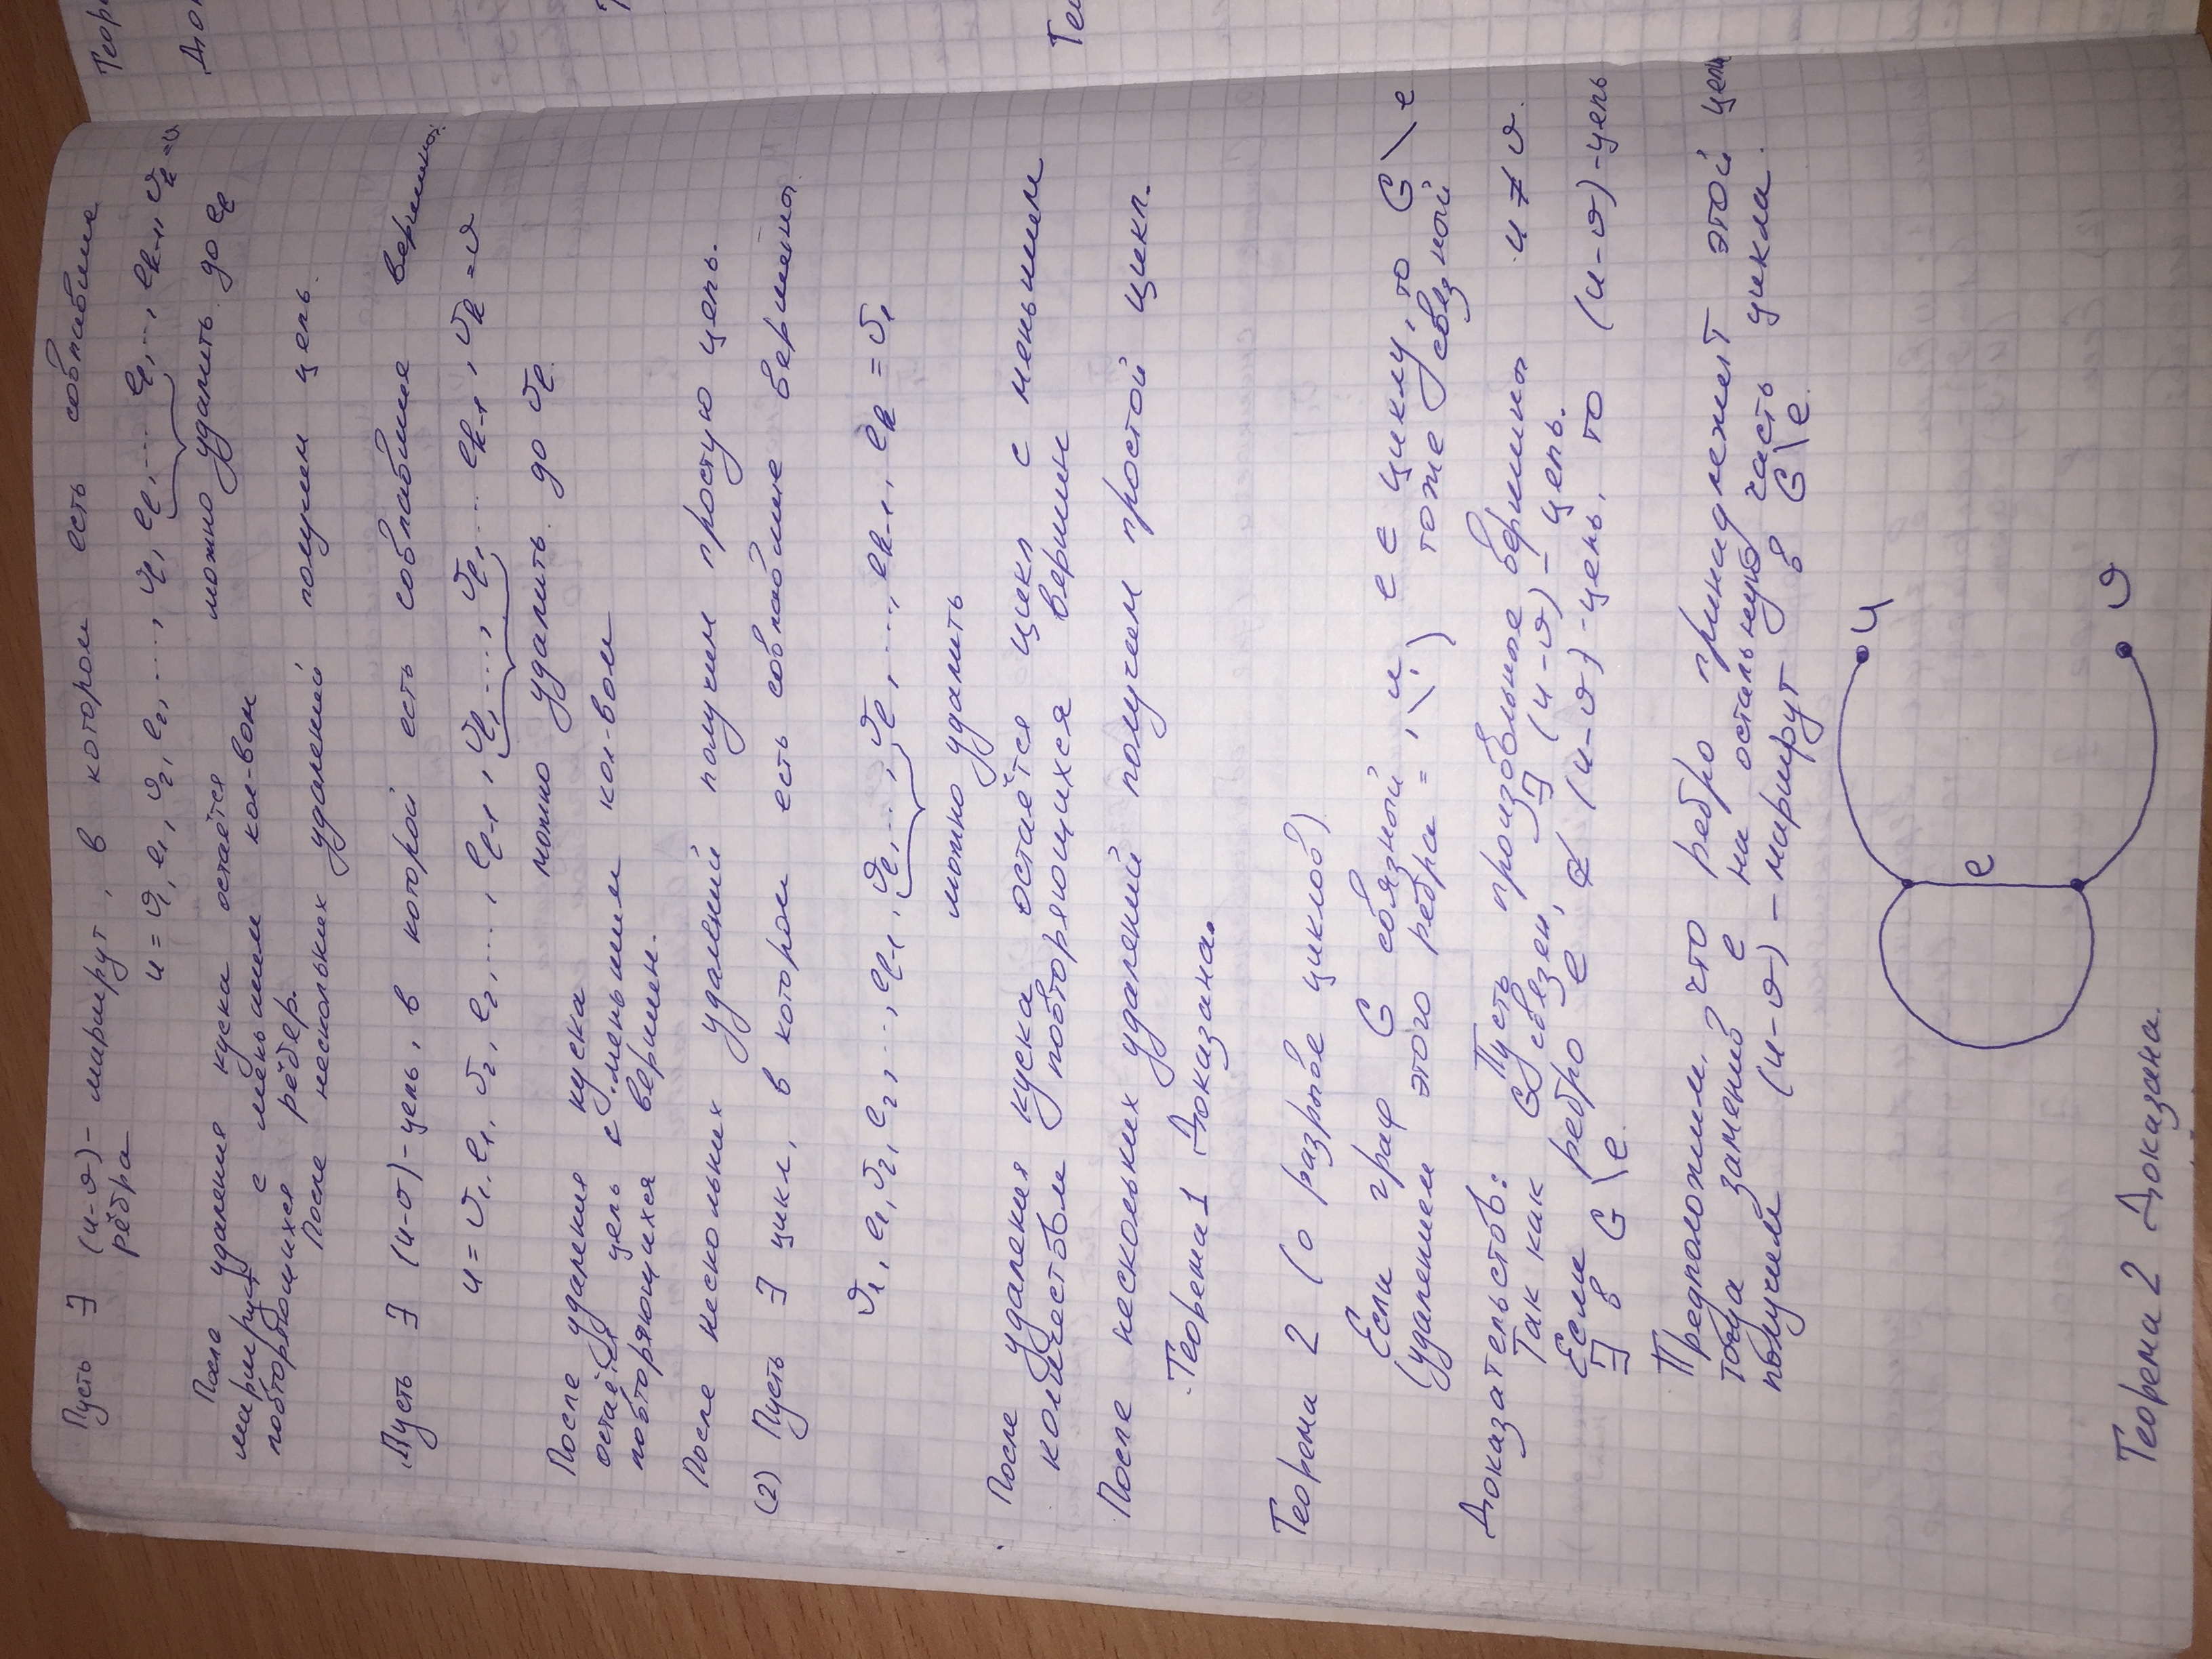 Пусть ∃ (u-v)- маршрут, в котором есть совпавшие
рёбра
u = v₁, e₁, v₂, e₂, ..., vₗ, eₗ, ... eₗ, .., eₖ₋₁, vₖ = v
можно удалить до eₗ
После удаления куска остаётся
маршрут с меньшим кол-вом
повторяющихся рёбер.
После нескольких удалений получим цепь.
Пусть ∃ (u-v)-цепь, в которой есть совпавшие вершины.
u = v₁, e₁, v₂, e₂, ..., eₗ₋₁, vₗ, ..., vₗ, ... eₖ₋₁, vₖ = v
можно удалить до vₗ.
После удаления куска
остаётся цепь с меньшим кол-вом
повторяющихся вершин.
После нескольких удалений получим простую цепь.
(2) Пусть ∃ цикл, в котором есть совпавшие вершины.
v₁, e₁, v₂, e₂, ..., eₗ₋₁, vₗ, ..., vₗ, ..., eₖ₋₁, eₖ = v₁
можно удалить
После удаления куска остаётся цикл с меньшим
количеством повторяющихся вершин
После нескольких удалений получим простой цикл.
Теорема 1 Доказана.
Теорема 2 (о разрыве циклов)
Если граф G связный, и e ∈ циклу, то G \ e
(удалением этого ребра = '\') тоже связный
Доказательстов: Пусть произвольные вершины u ≠ v.
Так как G связен, ∃ (u-v)- цепь.
Если ребро e ∉ (u-v)-цепь, то (u-v)-цепь
∃ в G \ e.
Предположим, что ребро принадлежит этой цепи
тогда заменив e на остальную часть цикла.
получим (u-v) - маршрут в G \ e.
u
e
v
Теорема 2 Доказана.
Теор
До
Те